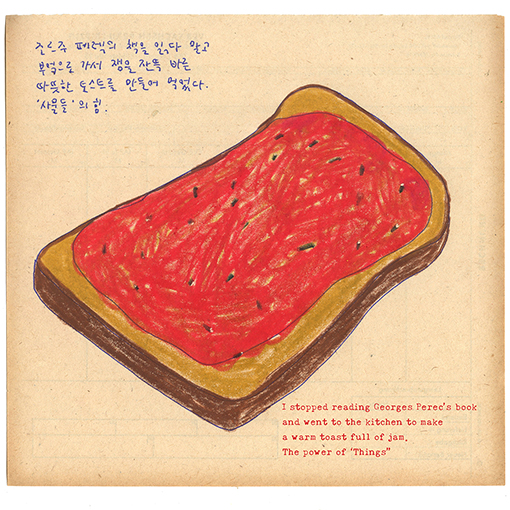 조르주 페렉의 책을 읽다 말고
부엌으로 가서 잼을 잔뜩 바른
따뜻한 토스트를 만들어 먹었다.
'사물들'의 힘.
I stopped reading Georges Perec's book
and went to the kitchen to make
a warm toast full of jam.
The power of 'Things"